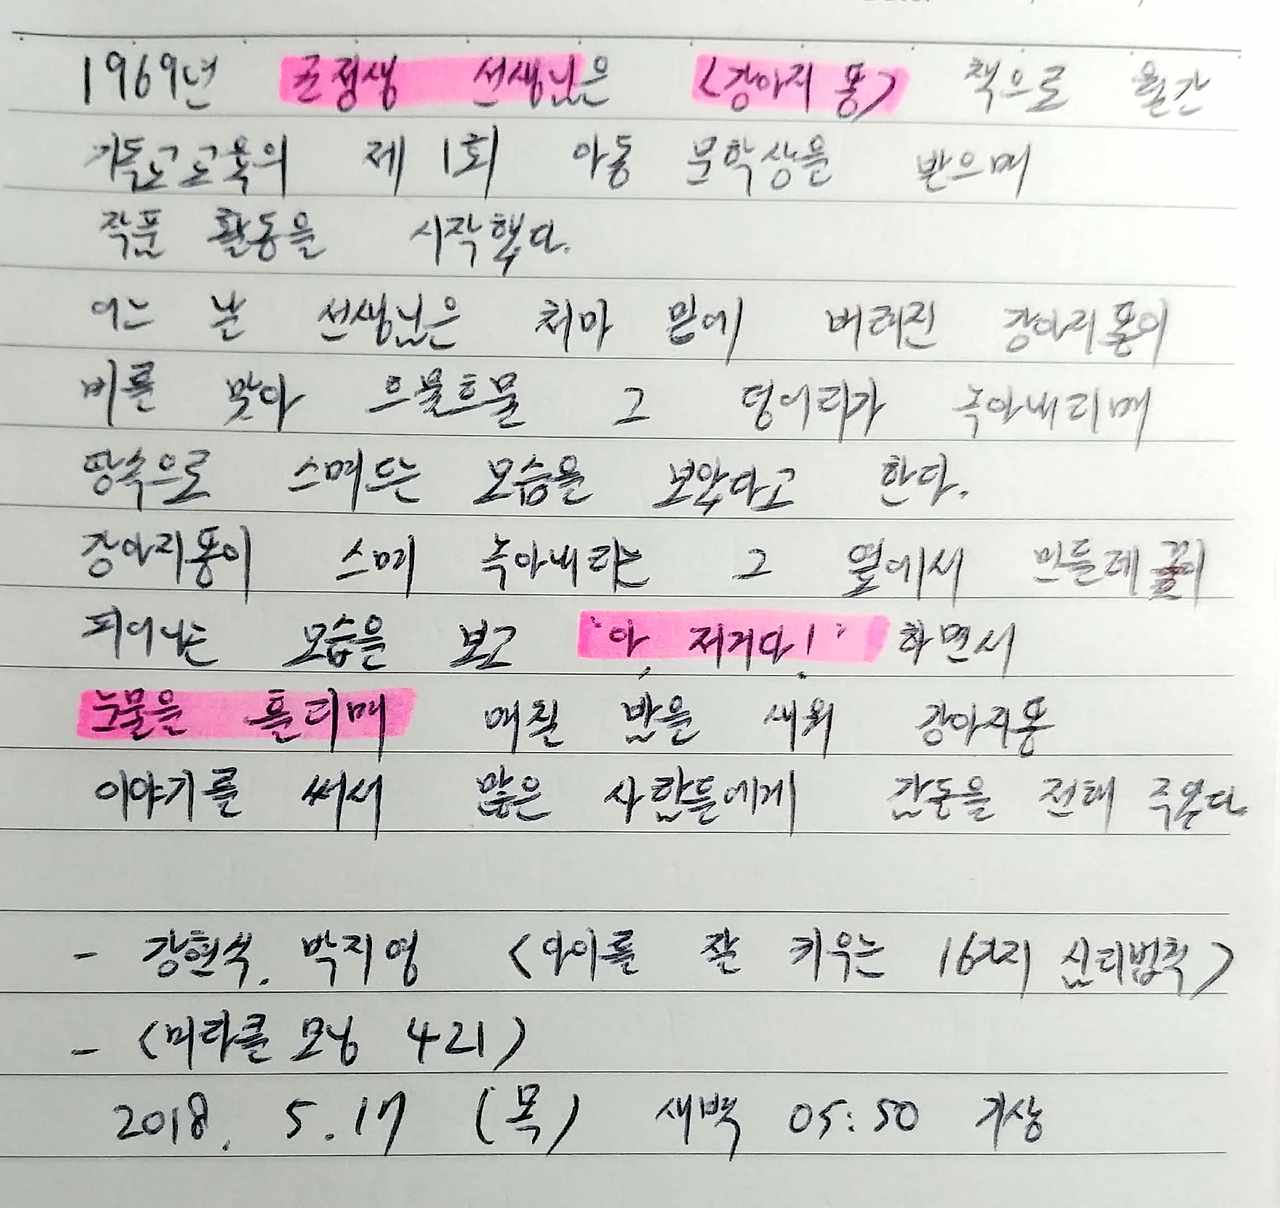 1969년 권정생 선생님은 <강아지 똥> 책으로 월간
기독교교육의 제 1회 아동 문학상을 받으며
작품 활동을 시작했다.
어느 날 선생님은 처마 밑에 버려진 강아지똥이
비를 맞아 흐물흐물 그 덩어리가 녹아내리며
땅속으로 스며드는 모습을 보았다고 한다.
강아지똥이 스며 녹아내리는 그 옆에서 민들레 꽃이
피어나는 모습을 보고 '아, 저거다!' 하면서
눈물을 흘리며 며칠 밤을 새워 강아지똥
이야기를 써서 많은 사람들에게 감동을 전해 주었다.
- 강현식, 박지영 <아이를 잘 키우는 16가지 심리법칙>
- <미라클 모닝 421>
2018. 5. 17 (목) 새벽 05:50 기상